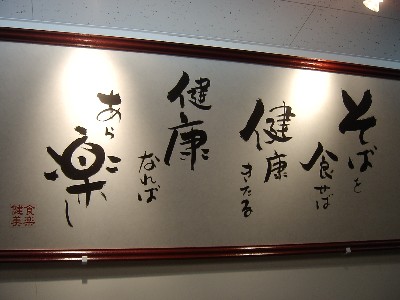 そばを
食せば
健康
きたる
健康
なれば
あら
楽し
食楽
健美